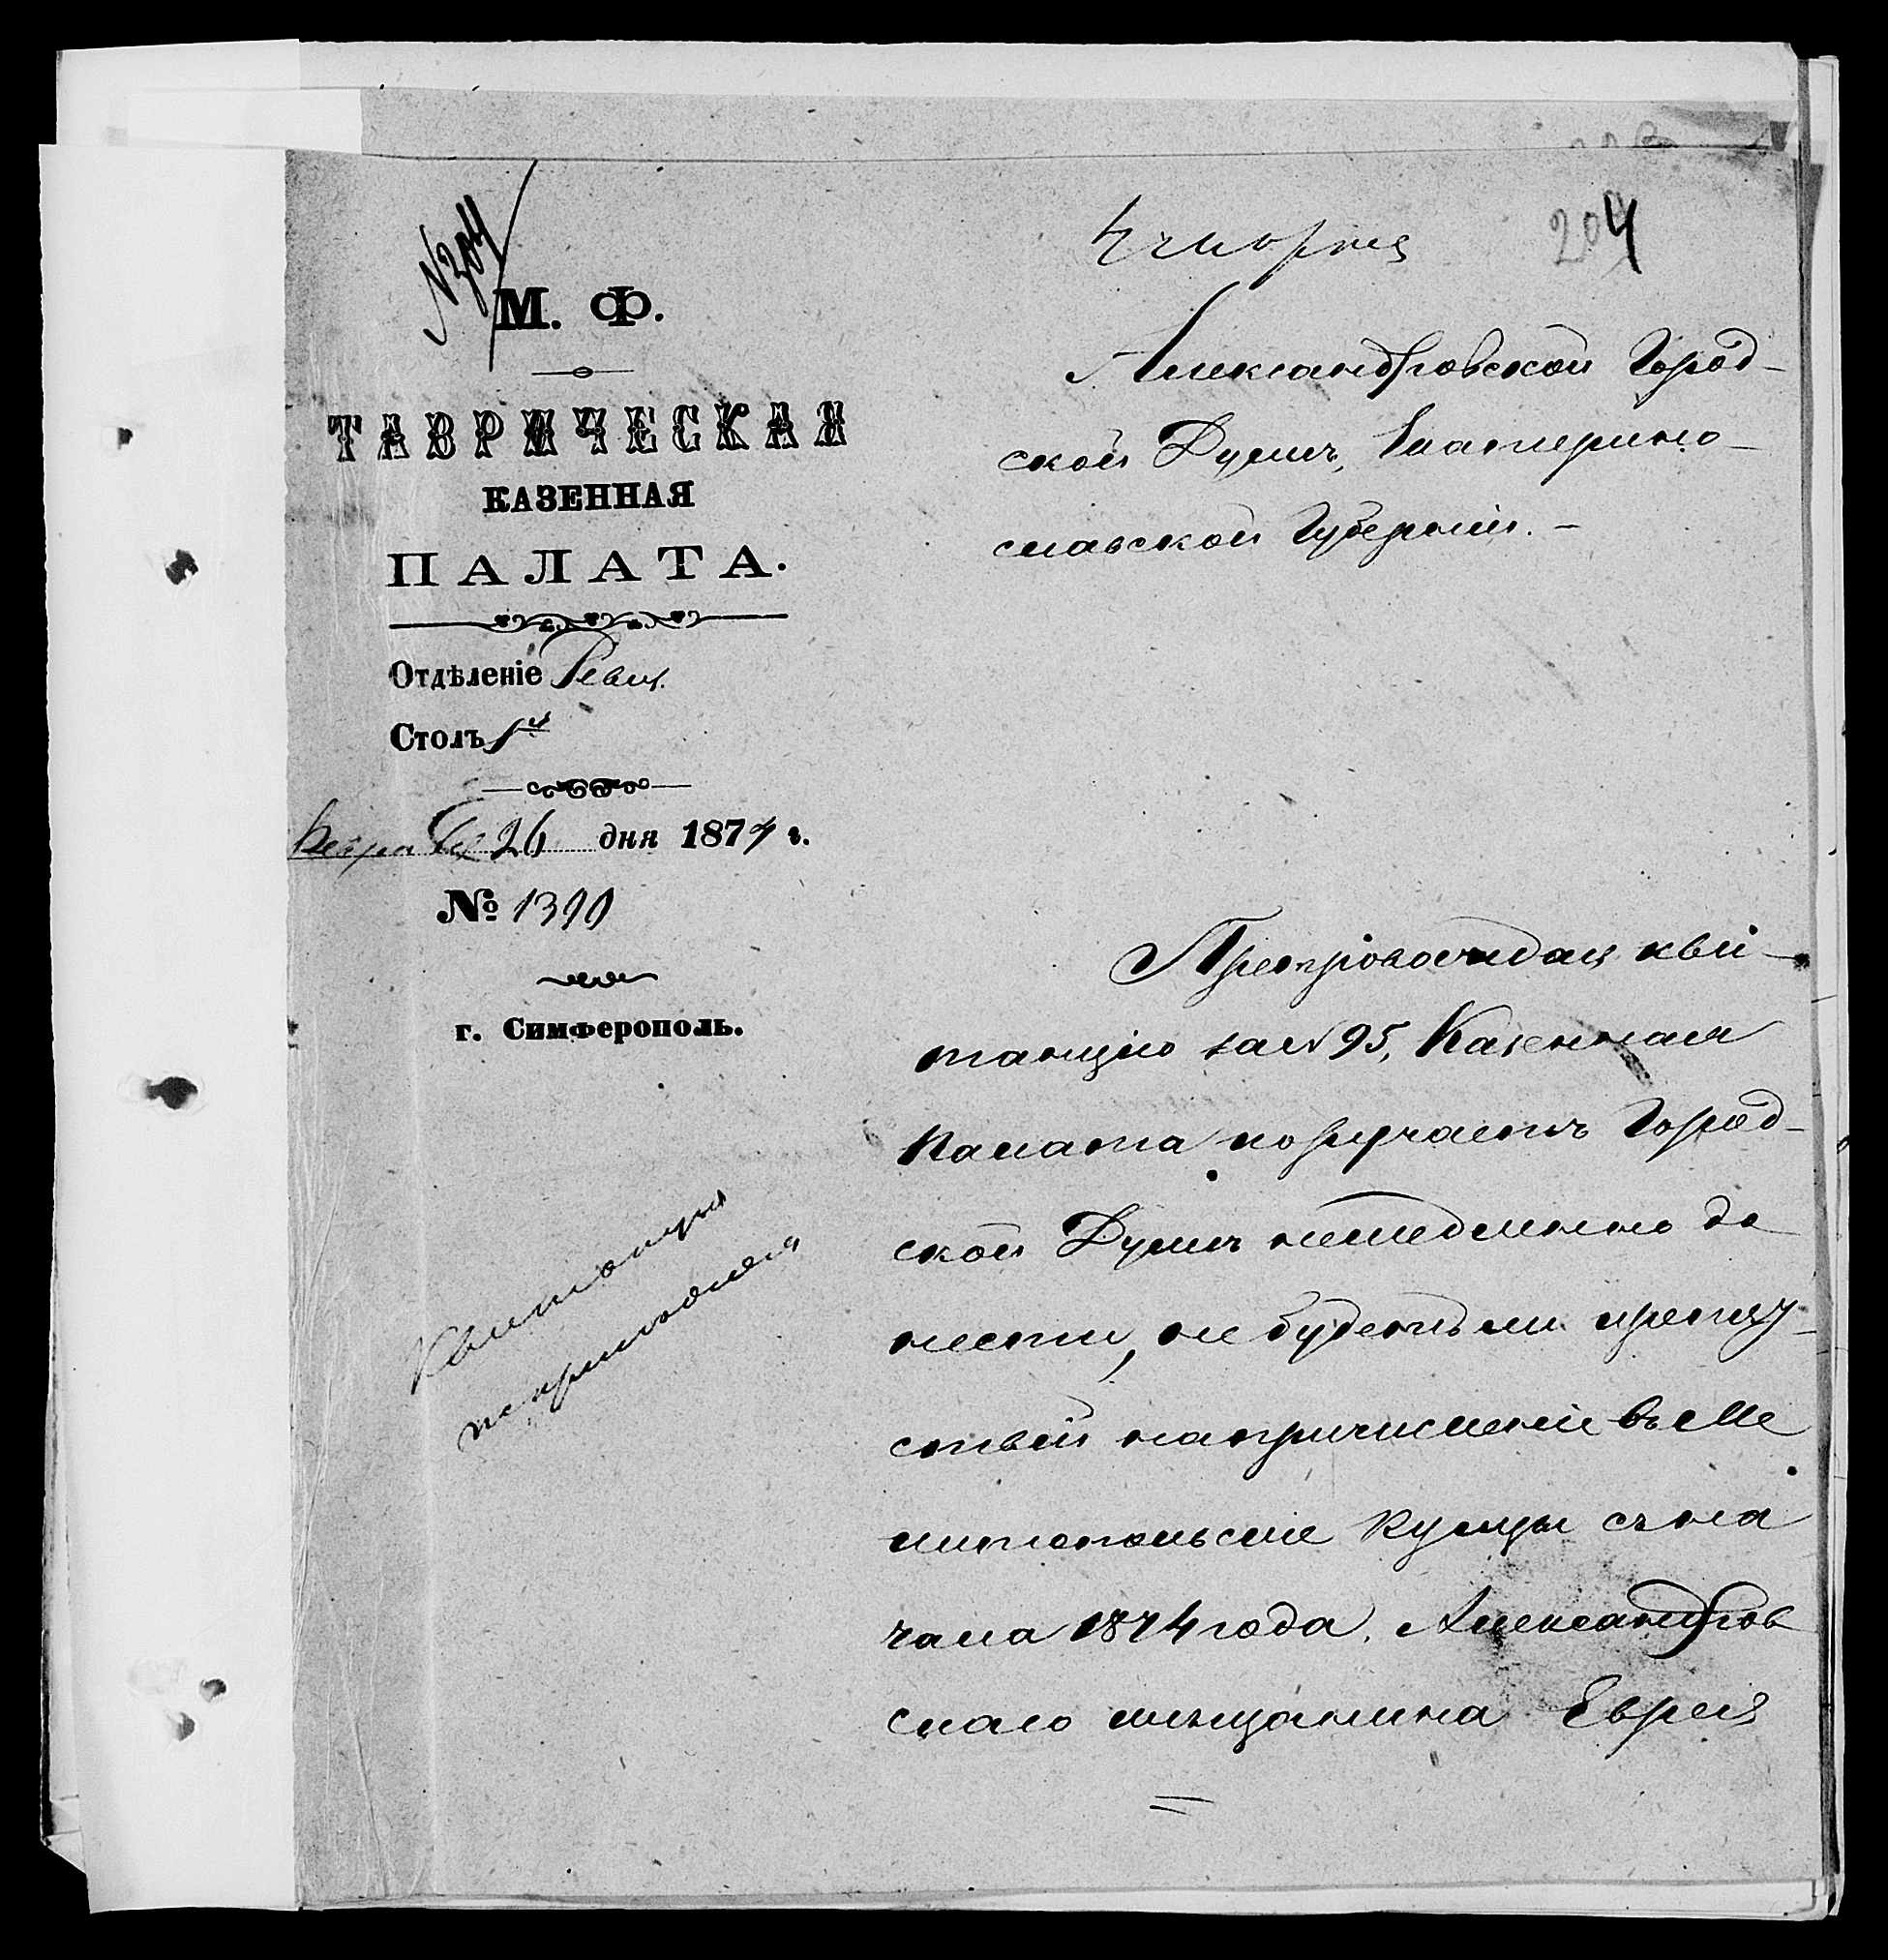 № 304
204
4 Марта
М. Ф.
ТАВРИЧЕСКАЯ
КАЗЕННАЯ
ПАЛАТА.
Отдѣленіе Ревиз.
Столъ 1й
Февраля 26 дня 1874 г.
№ 1390
г. Симферополь.
Квитанція
Александровской Город-
ской Думѣ, Екатерино-
славской Губерніи. –
Препровождая кви-
танцію за № 95, Казенная
Палата поручаетъ Город-
ской Думѣ немедленно до
нести, не будетъ ли препят-
ствій на причисленіе въ Ме
литопольскіе купцы съ на
чала 1874 года, Александров
скаго мѣщанина Еврея